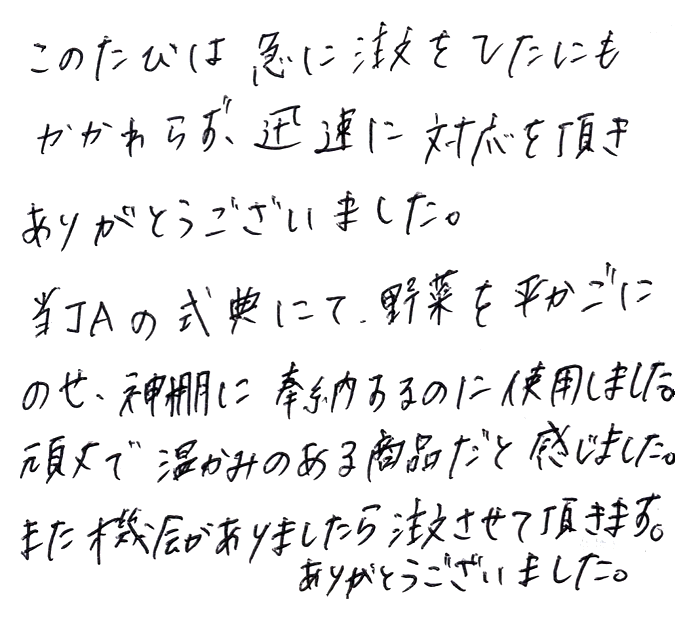 このたびは急に注文をしたにも
かかわらず、迅速に対応を頂き
ありがとうございました。
当JAの式典にて、野菜を平かごに
のせ、神棚に奉納するのに使用しました。
頑丈で温かみのある商品だと感じました。
また機会がありましたら注文させて頂きます。
ありがとうございました。